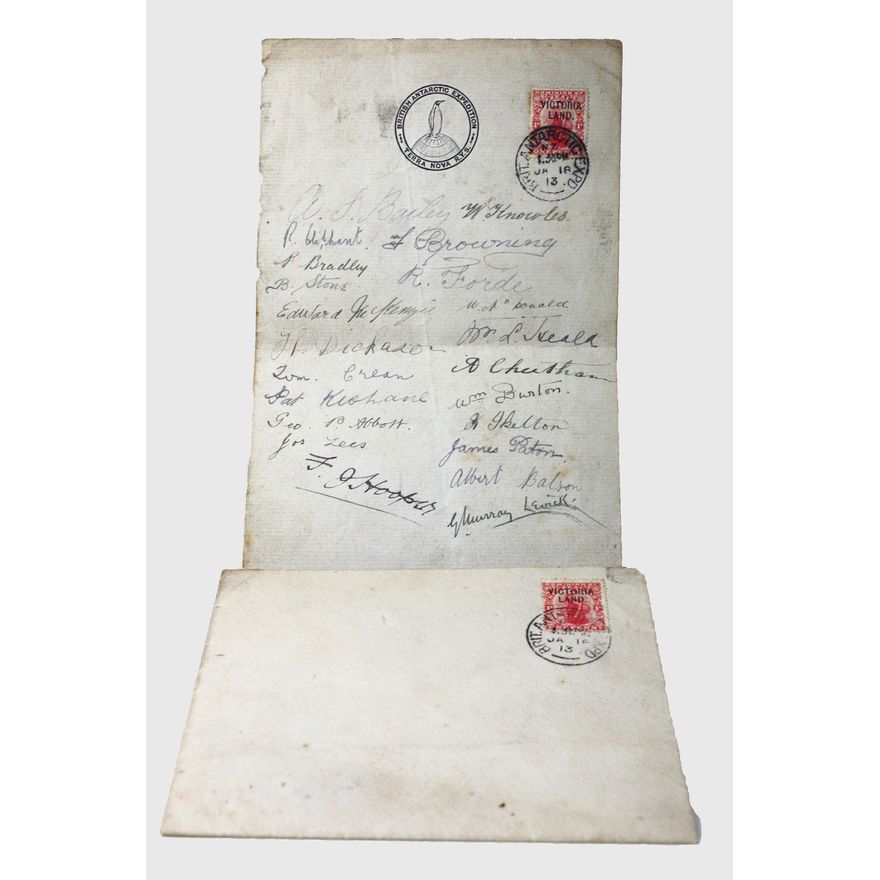 BRITISH ANTARCTIC EXPEDITION
TERRA NOVA R.Y.S.
VICTORIA
LAND.
BRIT. ANTARCTIC EXPD
N.Z.
JA 18
13
A. S. Bailey W Knowles
R. Oliphant F Browning
P Bradley R. Forde
B. Stone
Edward McKenzie W. McDonald
H. Dickason Wm L. Heald
Tom. Crean A Cheetham
Pat Keohane Wm Burton.
Geo. P. Abbott. J Skelton
Jos Lees James Paton.
F. J Hooper Albert Balson
G Murray Levick
VICTORIA
LAND.
BRIT. ANT EXPD
JA 18
13